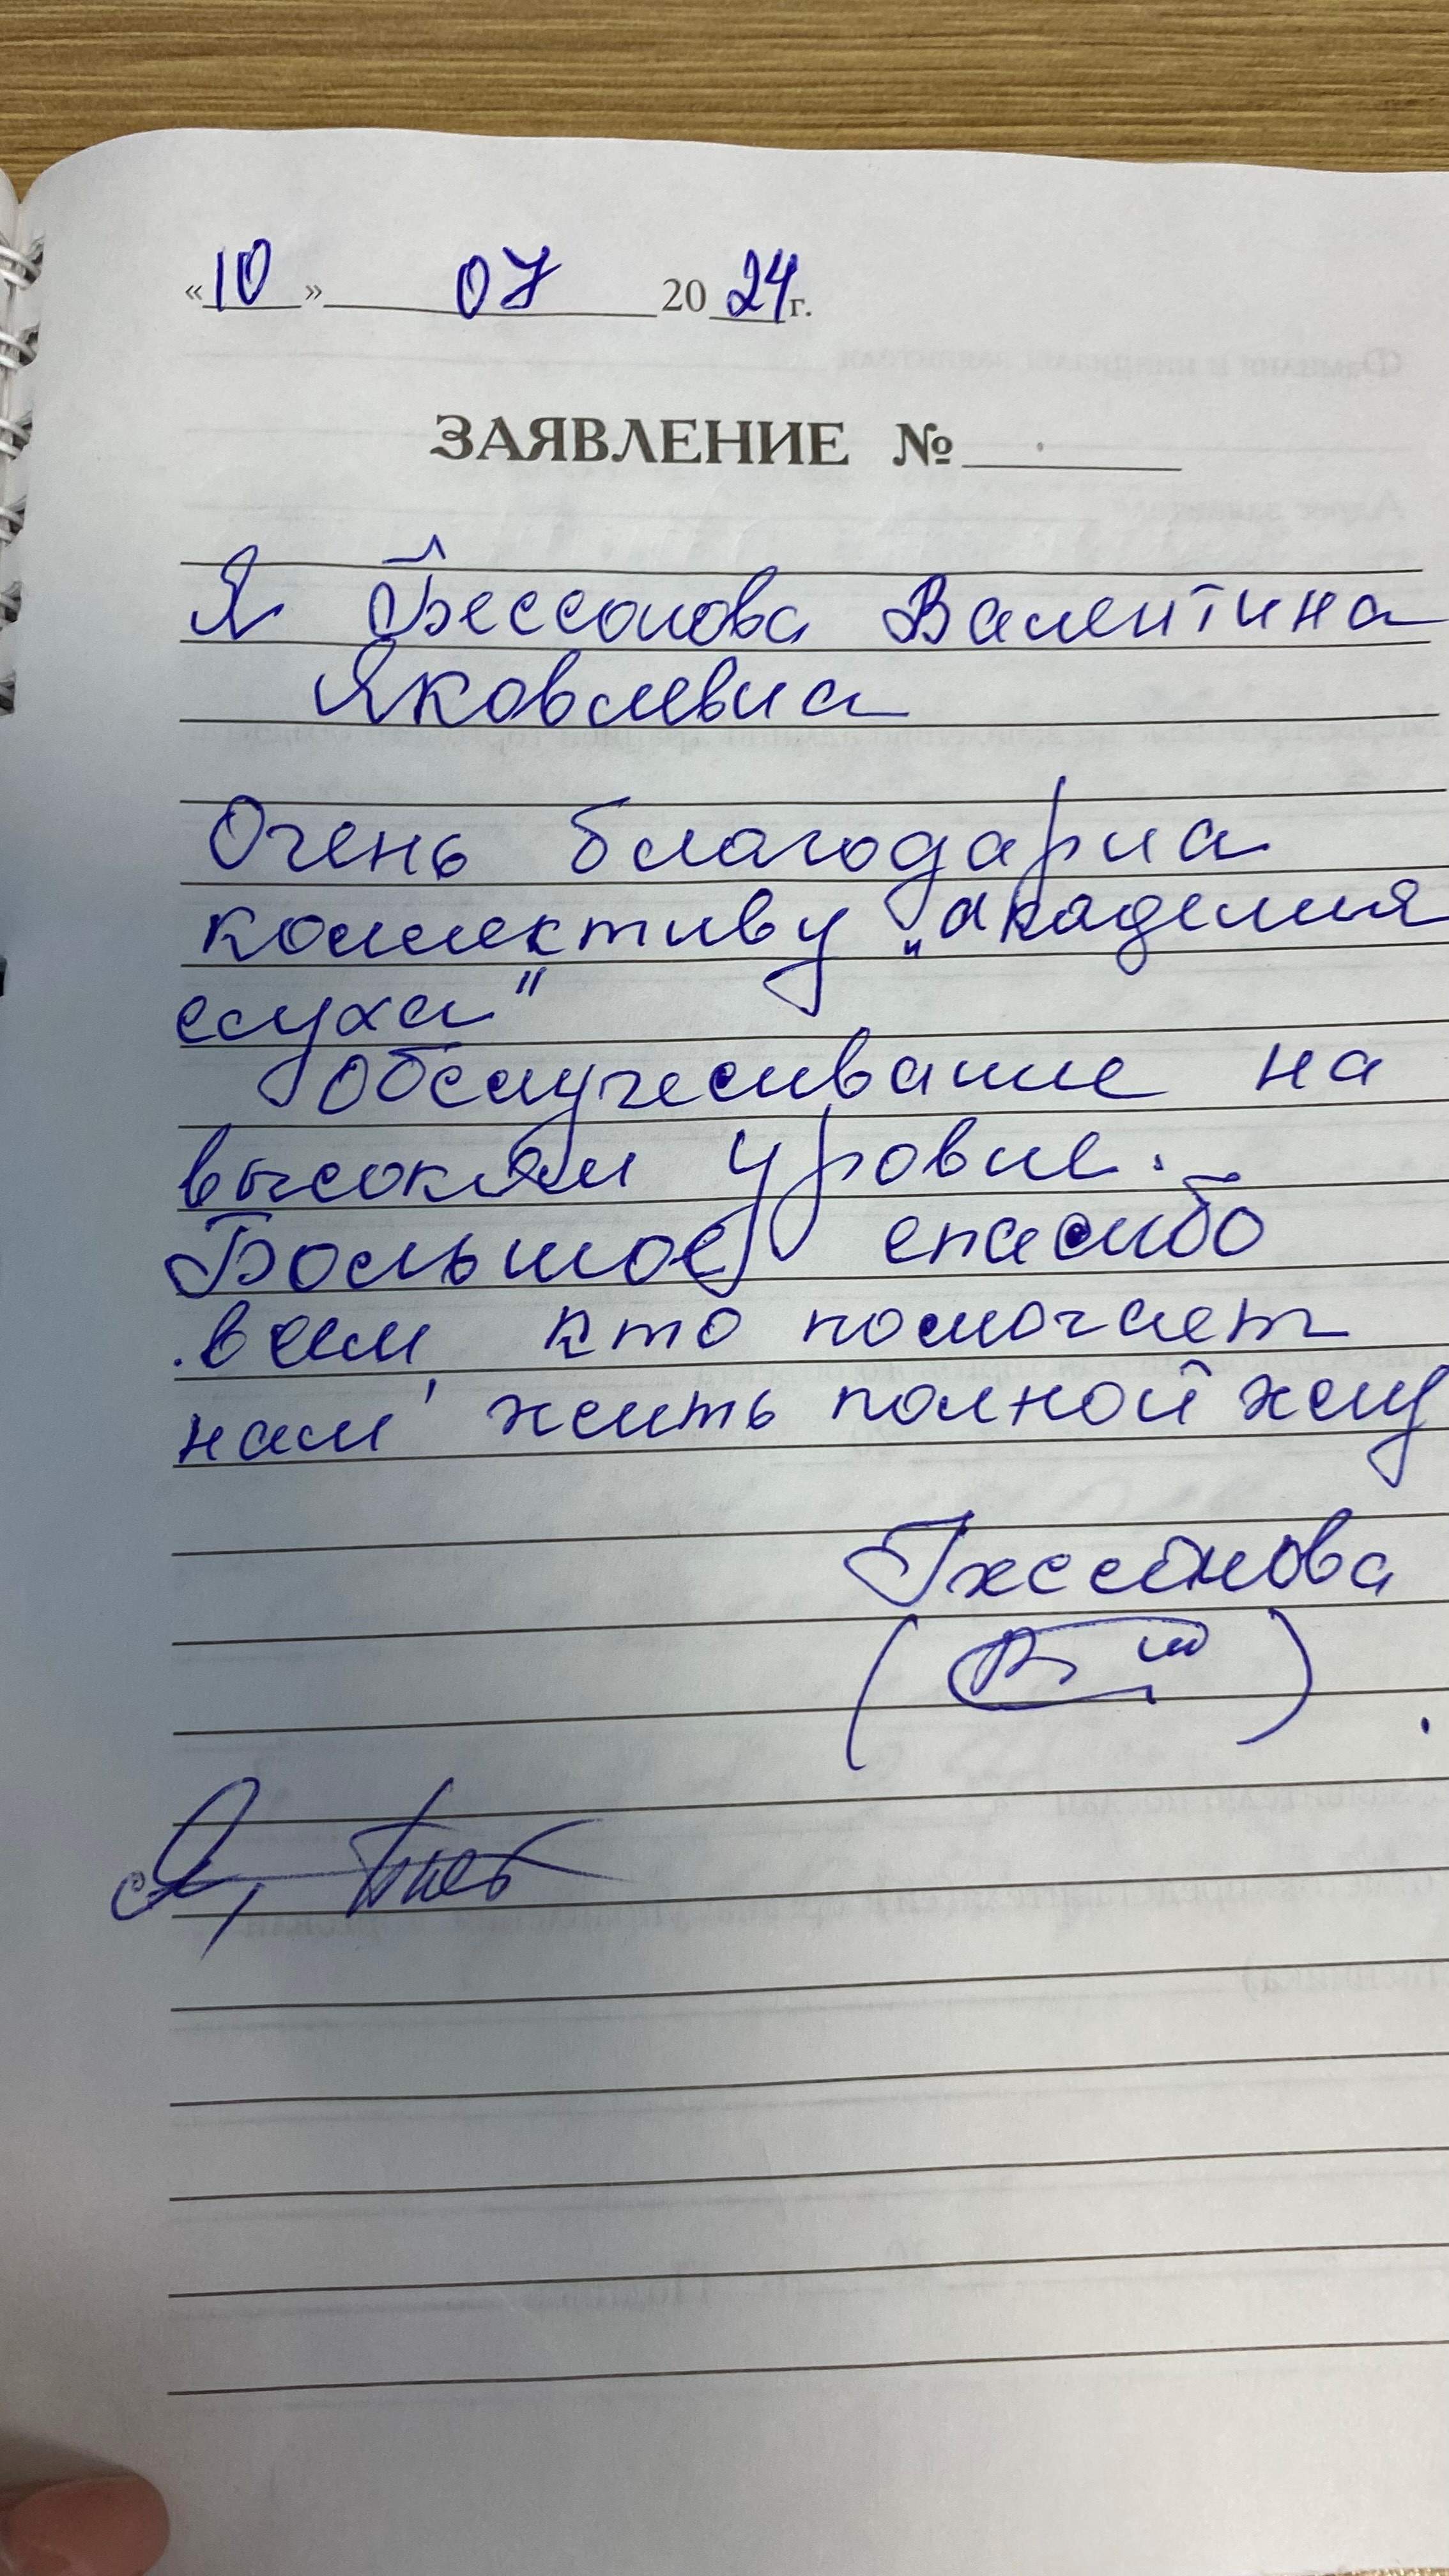 «10» 07 2024 г.
ЗАЯВЛЕНИЕ №
Я Бессонова Валентина
Яковлевна
Очень благодарна
коллективу „академия
слуха"
Обслуживание на
высоком уровне.
Большое спасибо
всем, кто помогает
нам жить полной жиз
Бессонова